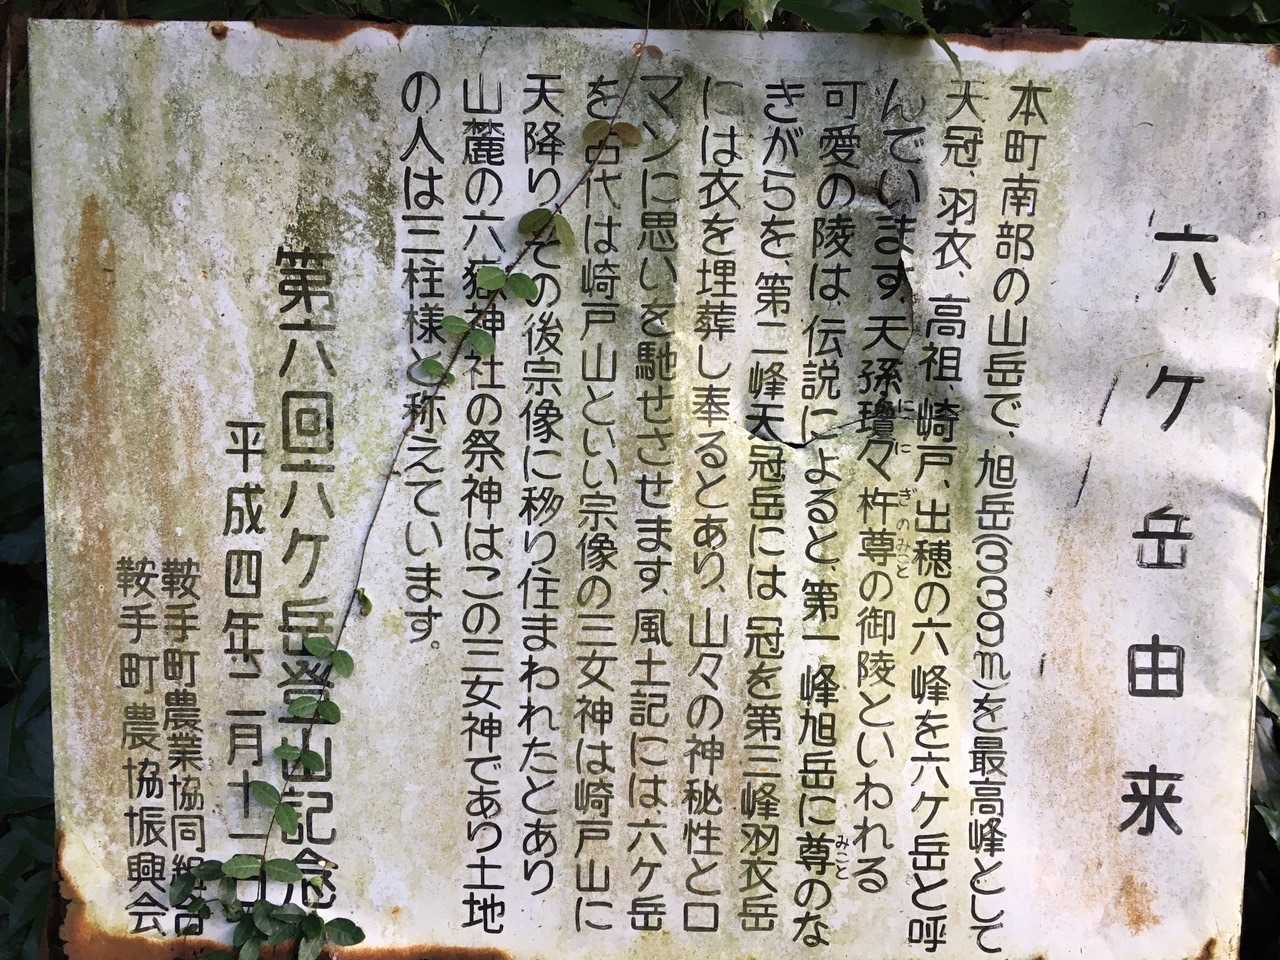 六ケ岳由来
本町南部の山岳で、旭岳(339m)を最高峰として
天冠、羽衣、高祖、崎戸、出穂の六峰を六ケ岳と呼
んでいます。天孫瓊々杵尊の御陵といわれる
にに ぎのみこと
可愛の陵は、伝説によると、第一峰旭岳に尊のな
みこと
きがらを、第二峰天冠岳には冠を第三峰羽衣岳
には衣を埋葬し奉るとあり、山々の神秘性とロ
マンに思いを馳せさせます。風土記には六ケ岳
を古代は崎戸山といい宗像の三女神は崎戸山に
天降りその後宗像に移り住まわれたとあり
山麓の六嶽神社の祭神はこの三女神であり土地
の人は三柱様と称えています。
第六回六ケ岳登山記念
平成四年二月十一日
鞍手町農業協同組合
鞍手町農協振興会